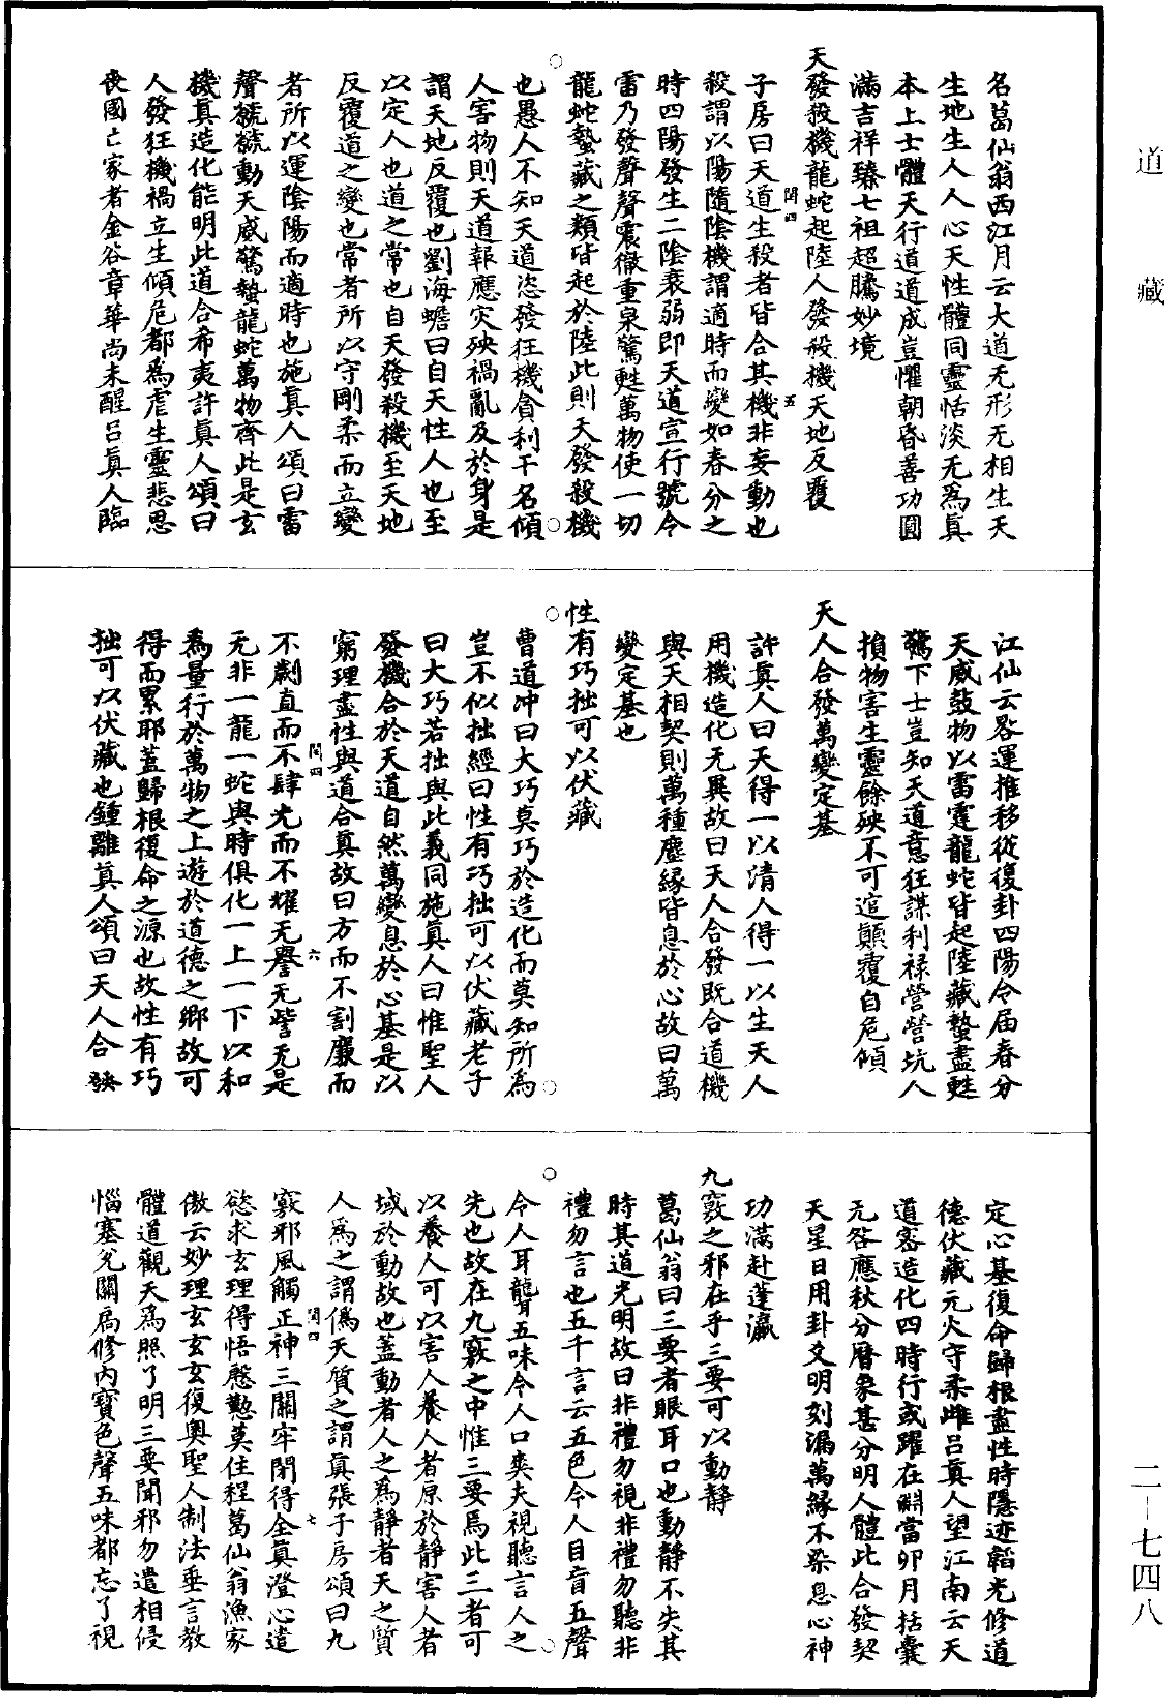 道藏
名葛仙翁西江月云大道无形无相生天
生地生人人心天性體同靈恬淡无為真
本上士體天行道道成豈懼朝昏善功圓
滿吉祥臻七祖超騰妙境
天發殺機龍蛇起陸人發殺機天地反覆
子房曰天道生殺者皆合其機非妄動也
殺謂以陽隨陰機謂適時而變如春分之
時四陽發生二陰衰弱即天道宣行號令
雷乃發聲聲震徹重泉驚甦萬物使一切
龍蛇蟄藏之類皆起於陸此則天發殺機
也愚人不知天道恣發狂機貪利干名傾
人害物則天道報應灾殃禍亂及於身是
謂天地反覆也劉海蟾曰自天性人也至
以定人也道之常也自天發殺機至天地
反覆道之變也常者所以守剛柔而立變
者所以運陰陽而適時也施真人頌曰雷
聲虩虩動天威驚蟄龍蛇萬物齊此是玄
機真造化能明此道合希夷許真人頌曰
人發狂機禍立生傾危都為虐生靈悲思
喪國亡家者金谷章華尚未醒呂真人臨
閏四
五
江仙云畧運推移從復卦四陽令届春分
天威鼓物以雷霆龍蛇皆起陸藏蟄盡甦
驚下士豈知天道意狂謀利祿營營坑人
損物害生靈餘殃不可逭顛覆自危傾
天人合發萬變定基
許真人曰天得一以清人得一以生天人
用機造化无異故曰天人合發既合道機
與天相契則萬種塵緣皆息於心故曰萬
變定基也
性有巧拙可以伏藏
曹道冲曰大巧莫巧於造化而莫知所為
豈不似拙經曰性有巧拙可以伏藏老子
曰大巧若拙與此義同施真人曰惟聖人
發機合於天道自然萬變息於心基是以
窮理盡性與道合真故曰方而不割廉而
不劌直而不肆光而不耀无譽无訾无是
无非一龍一蛇與時俱化一上一下以和
為量行於萬物之上遊於道德之鄉故可
得而累耶蓋歸根復命之源也故性有巧
拙可以伏藏也鍾離真人頌曰天人合發
閏四
六
定心基復命歸根盡性時隱迹韜光修道
德伏藏元火守柔雌呂真人望江南云天
道密造化四時行或躍在淵當卯月括囊
无咎應秋分曆象甚分明人體此合發契
天星日用卦爻明刻漏萬緣不染息心神
功滿赴蓬瀛
九竅之邪在乎三要可以動靜
葛仙翁曰三要者眼耳口也動靜不失其
時其道光明故曰非禮勿視非禮勿聽非
禮勿言也五千言云五色令人目盲五聲
令人耳聾五味令人口爽夫視聽言人之
先也故在九竅之中惟三要焉此三者可
以養人可以害人養人者原於靜害人者
域於動故也蓋動者人之為靜者天之質
人為之謂僞天質之謂真張子房頌曰九
竅邪風觸正神三關牢閉得全真澄心遣
慾求玄理得悟慇懃莫住程葛仙翁漁家
傲云妙理玄玄玄復奧聖人制法垂言教
體道觀天為照了明三要聞邪勿遣相侵
惱塞兌關扃修內寶色聲五味都忘了視
閏四
七
二－七四八